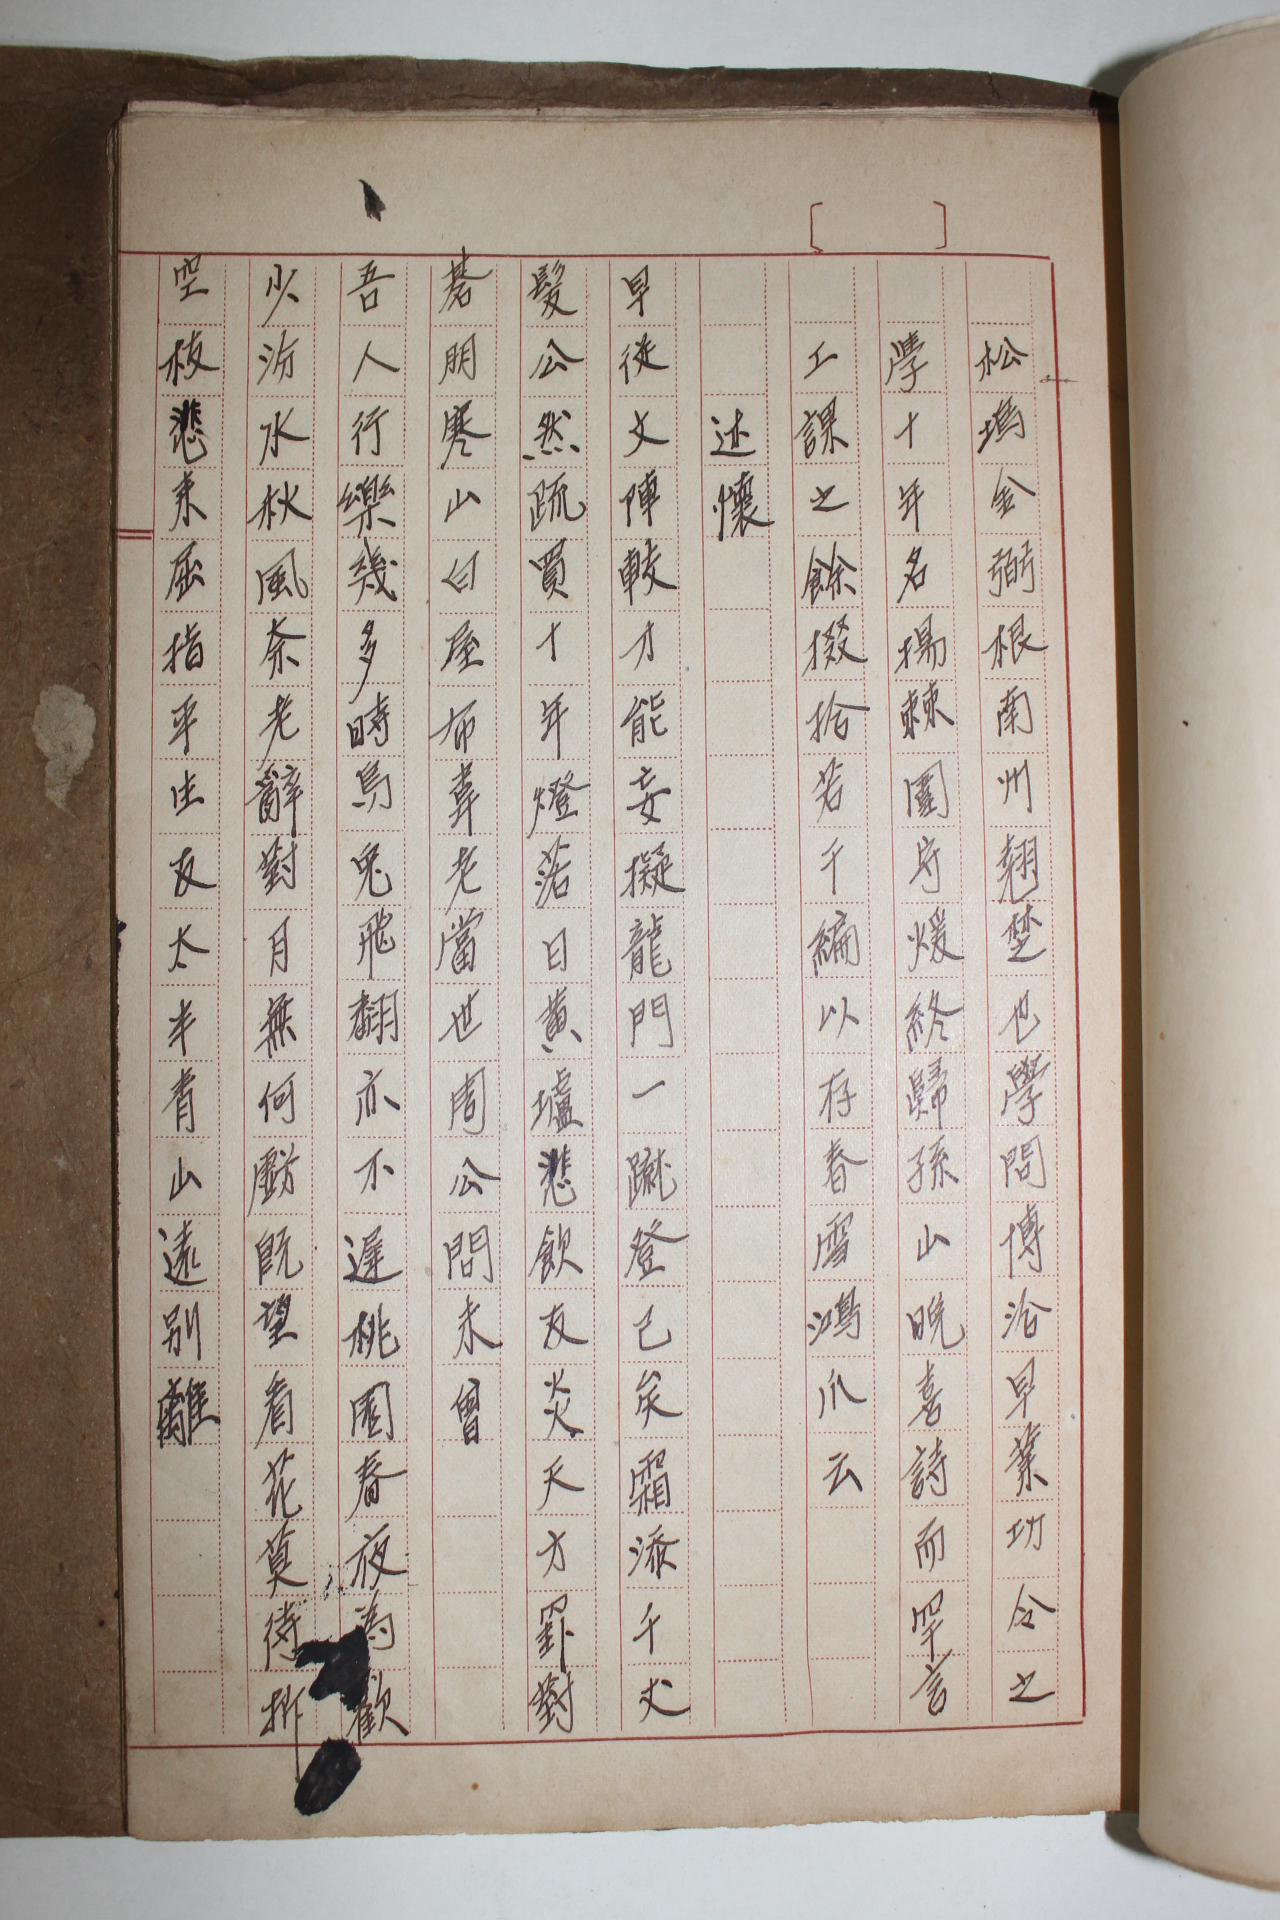 松塢金弼根南州翹楚也學問博洽早業功令之
學十年名場棘圍守煖終歸孫山晩喜詩而罕言
工課之餘掇拾若干編以存春雪鴻爪云
述懷
早從文陣較才能妄擬龍門一蹴登已矣霜添千丈
髮公然疏買十年燈落日黃壚悲飮友炎天方罫對
碁朋寒山白屋布韋老當世周公問未曾
吾人行樂幾多時烏兎飛翻亦不遲桃園春夜爲歡
少汾水秋風奈老辭對月無何虧旣望看花莫待折
空枝悲來屈指平生友太半靑山遠別離